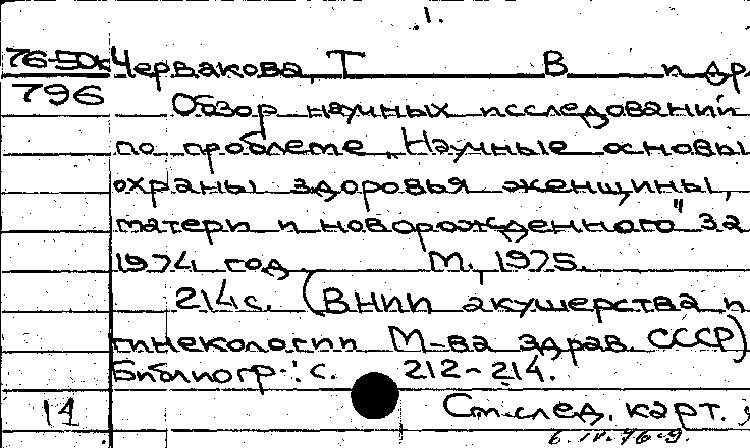 1.
76-50к Червакова, Т В и др
796
Обзор научных исследований
по проблеме „Научные основы
охраны здоровья женщины,
матери и новорожденного" за
1974 год М., 1975.
214 с. (ВНИИ акушерства и
гинекологии М-ва здрав. СССР)
Библиогр.: с. 212-214.
14 См. след. карт.